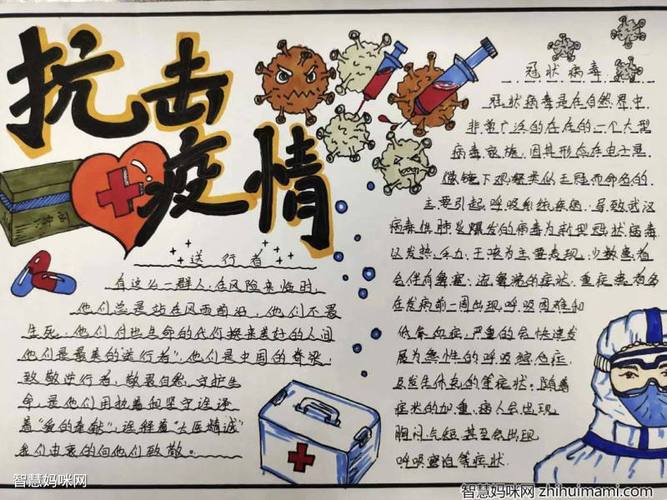 抗击
疫情
送行者
有这么一群人,在风险来临时
他们总是站在风雨面前,他们不畏
生死,他们付出生命的代价换来美好的人间
他们是最美的逆行者",他们是中国的脊梁
致敬逆行者,敬畏自然,守护生
命,是他们用执着和坚守诠译
着"爱的奉献",诠释着"大医精诚"
我们由衷的向他们致敬。
冠状病毒
冠状病毒是在自然界中
非常广泛的存在的一个大型
病毒家族,因其形态在电子显
微镜下观察类似王冠而命名的.
主要引起呼吸系统疾病.导致武汉
病毒性肺炎爆发的病毒为新型冠状病毒
以发热,乏力,干咳为主要表现,少数患者
会伴有鼻塞,流鼻涕的症状,重症患者多
在发病前一周出现呼吸困难和
低氧血症,严重的会快速发
展为急性的呼吸综合症
及发生休克的等症状;随着
症状的加重,病人会出现
胸闷气短甚至会出现
呼吸窘迫等症状.
智慧妈咪网
智慧妈咪网 zhihuimami.com